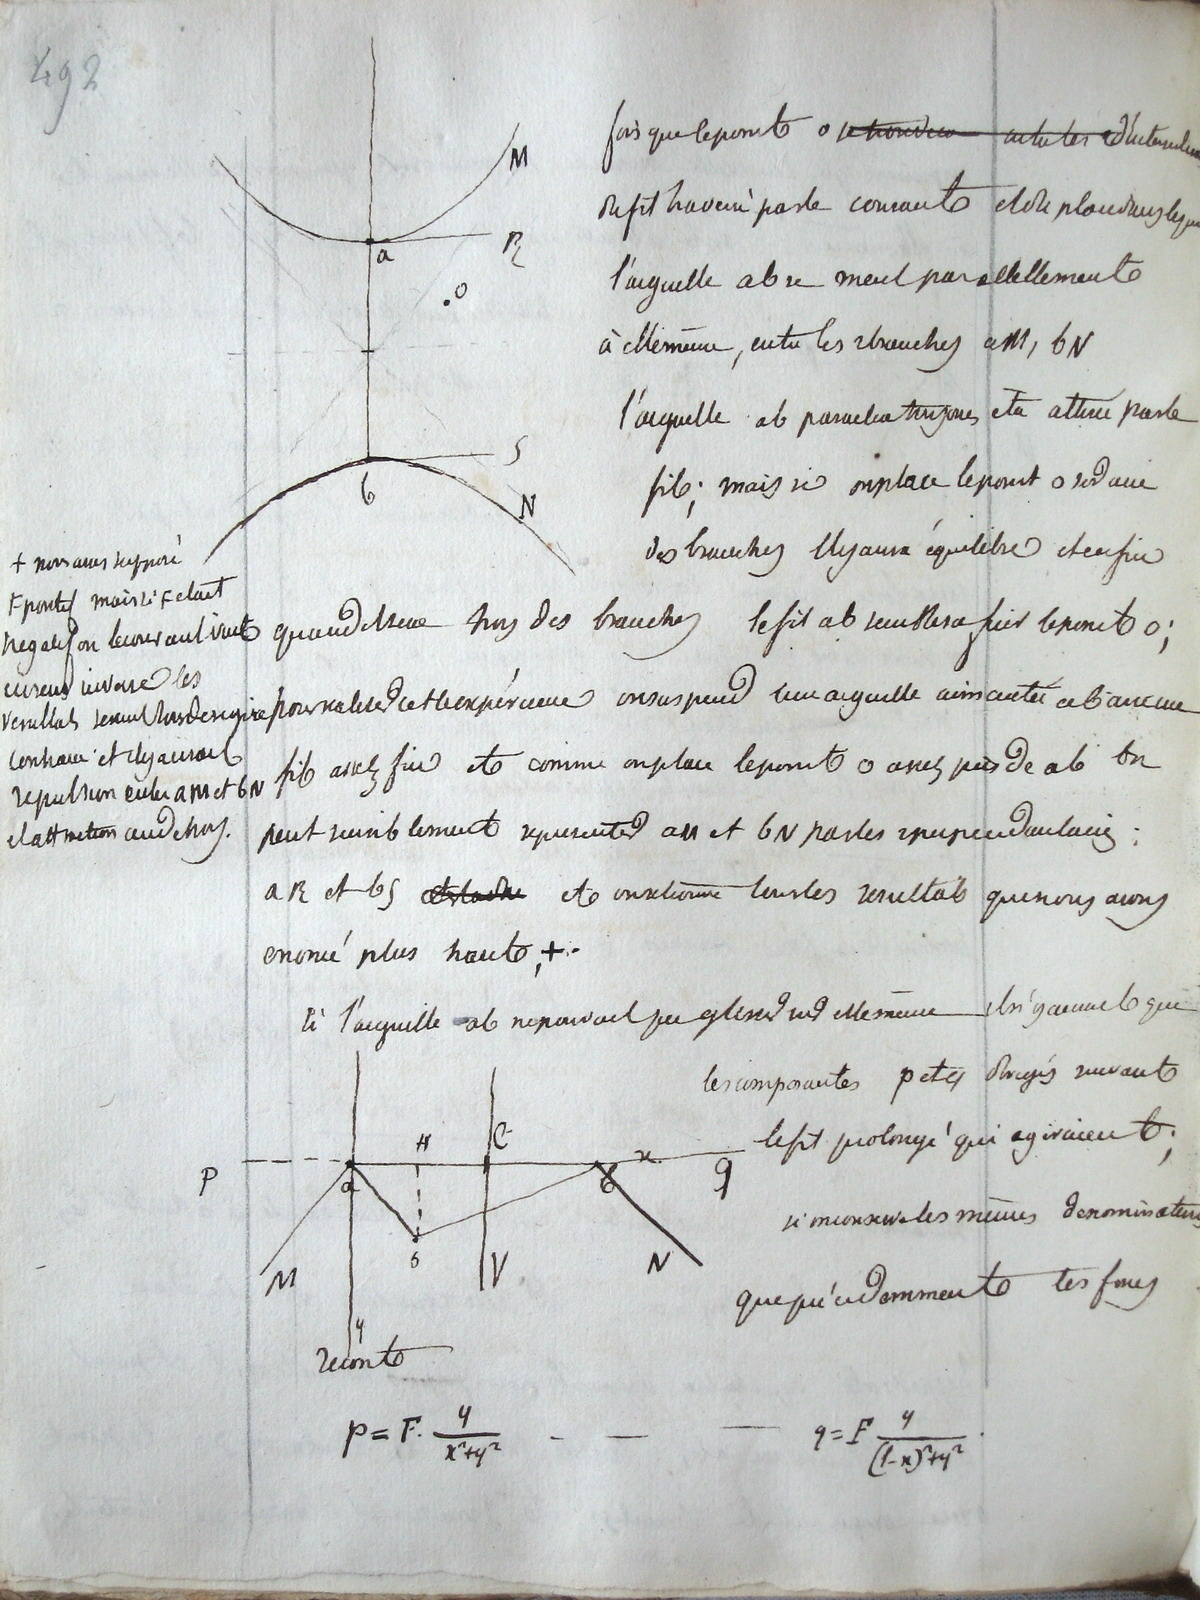 492
M
a
R
.o
S
b
N
fois que le point o
du fil traversé par le courant et du plan dans lequel
l'aiguille ab se meut parallellement
à elle même, entre les 2 branches aM, bN
l'aiguille ab paraitra toujours etre attirée par le
fil; mais si on place le point o sur d'une
des branches il y aura équilibre et enfin
quand il sera hors des branches le fil ab semblera fuir le point o;
pour faire cette expérience on suspend une aiguille aimantée ab a un
fil assez fin et comme on place le point o assez près de ab on
peut sensiblement représenter aM et bN par les 2 perpendiculaires
aR et bS et on retrouve tous les resultats que nous avons
enoncé plus haut, +.
+ nous avons supposé
F positif mais si F était
negatif on le courant
en sens inverse les
resultats seraient tous de signe
contraire et il y aurait
repulsion entre aM et bN
et attraction au dehors.
si l'aiguille ab ne pouvait que glisser sur elle même il n'y aurait que
les composantes p et q dirigés suivant
le fil prolongé qui agiraient;
si on conserve les mêmes denominations
que précédemment les forces
P
a
H
C
b
x
q
M
o
V
N
y
seront
p = F. y/(x²+y²) - — — q = F y/((l-x)²+y²).